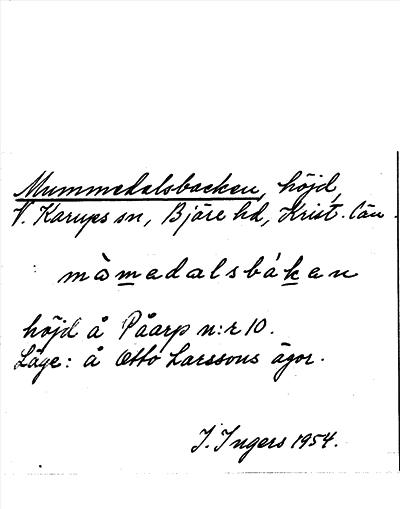 Mummedalsbacken, höjd,
V. Karups sn, Bjäre hd, Krist. län.
màmedalsbákan
höjd å Påarp n:r 10.
Läge: å Otto Larssons ägor.
I. Ingers 1954.